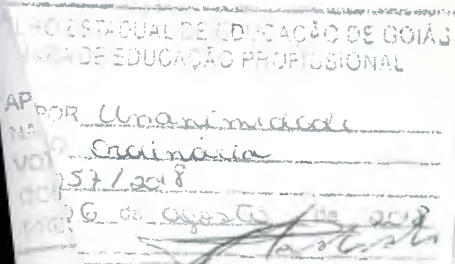 LHO ESTADUAL DE EDUCAÇÃO DE GOIÁS
DE EDUCAÇÃO PROFISSIONAL
AP POR Unanimidade
Ordinária
VOT 57/2018
6 de agosto de 2018